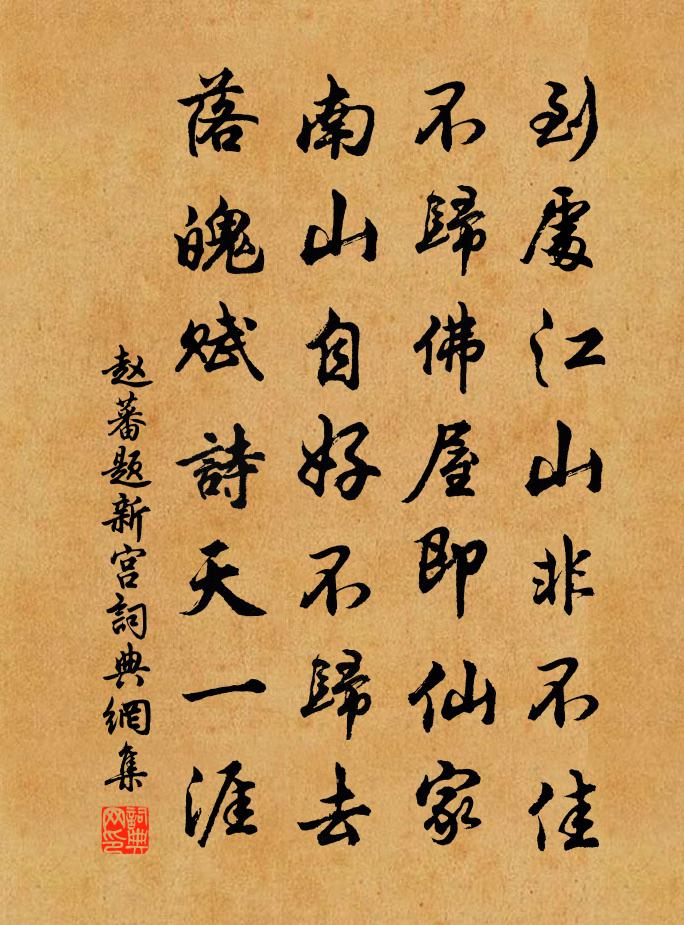 到處江山非不佳
不歸佛屋即仙家
南山自好不歸去
落魄賦詩天一涯
赵蕃题新宫詞典網集
詞典网印